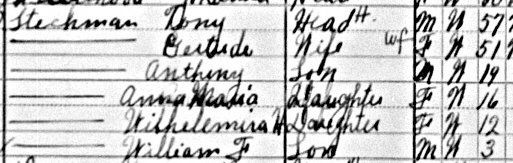 Stechman Tony Head H M W 57
Gertude Wife wf F W 51
Anthony Son M W 19
Anna Maria Daughter F W 16
Wilhelemira H Daughter F W 12
William F Son M W 3